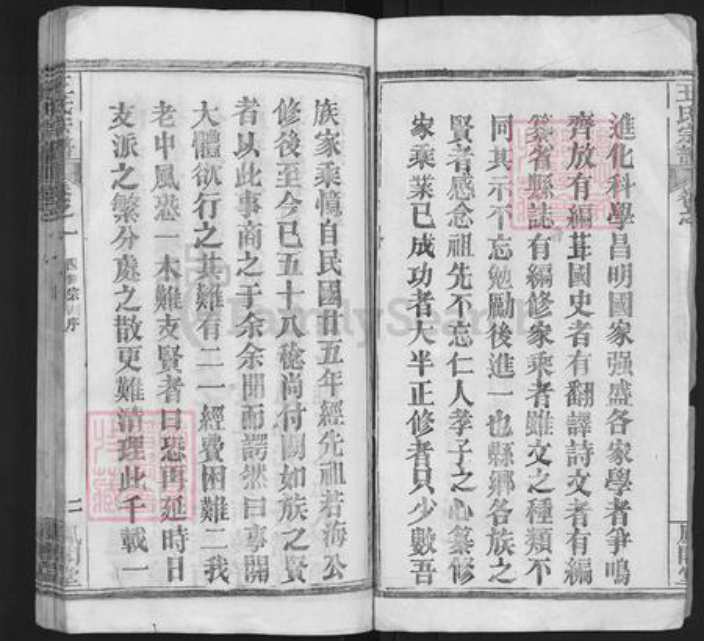 王氏宗譜
卷之
進化科學昌明國家强盛各家學者爭鳴
齊放有編茸國史者有翻譯詩文者有編
篡省縣誌有編修家乘者雖文之種類不
同其示不忘勉勵後進一也縣鄉各族之
賢者感念祖先不忘仁人孝子之心篡修
家乘業已成功者大半正修者只少數吾
族家乘憶自民國廿五年經先祖若海公
修後至今已五十八稔尚付闕如族之賢
者以此事商之于余余聞而諤然曰事關
大體欲行之其難有二一經費困難二我
老中風恐一木難支賢者曰恐再延時日
支派之繁分處之散更難清理此千載一
卷之一
序
二
FamilySearch